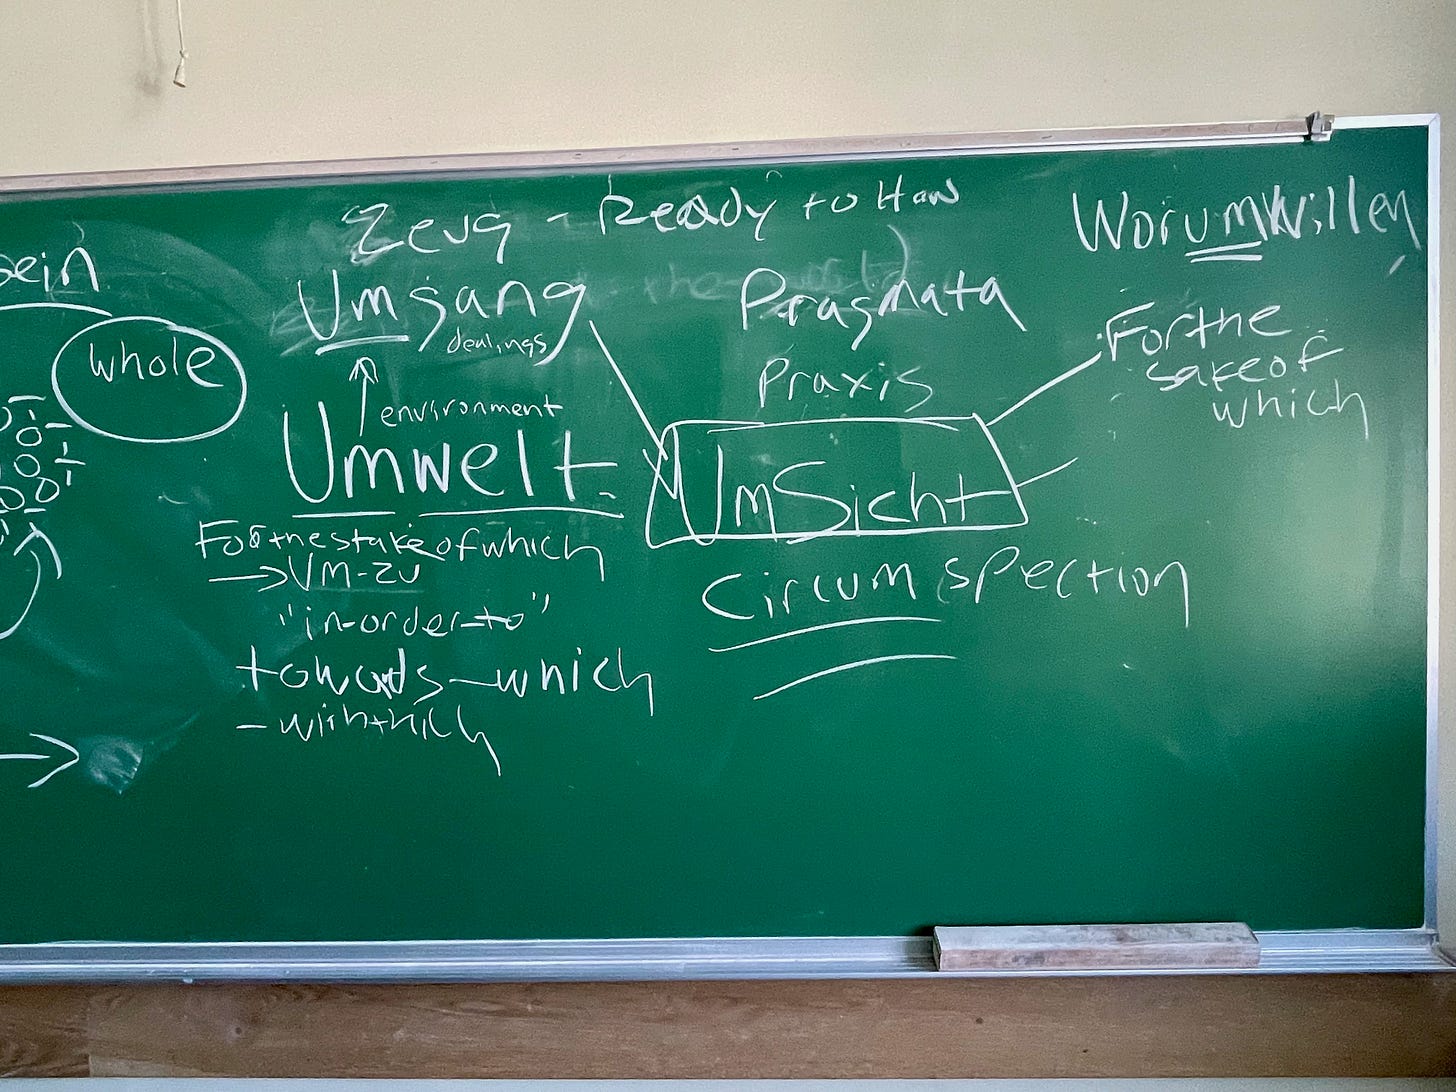 Zeug - Ready to Han
WorumWillen
sein
Umgang
Pragmata
dealings
whole
Praxis
For the
sake of
which
environment
Umwelt
UmSicht
For the stake of which
→ Um-zu
"in-order-to"
Circumspection
towards-which